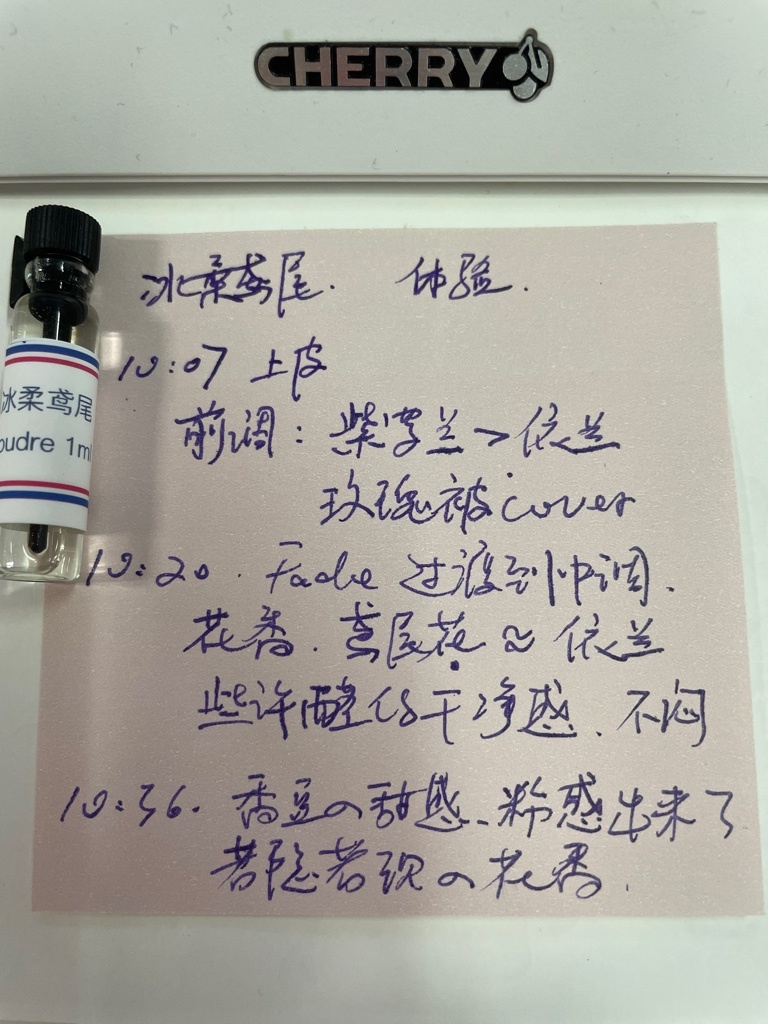 CHERRY
冰柔鸢尾
oudre 1ml
冰柔鸢尾. 体验.
10:07 上皮
前调: 紫罗兰 > 依兰
玫瑰被 cover
10:20. Fade 过渡到中调.
花香. 鸢尾花 ≈ 依兰
些许醛化干净感、不闷
10:36. 香豆の甜感、粉感出来了
若隐若现の花香.